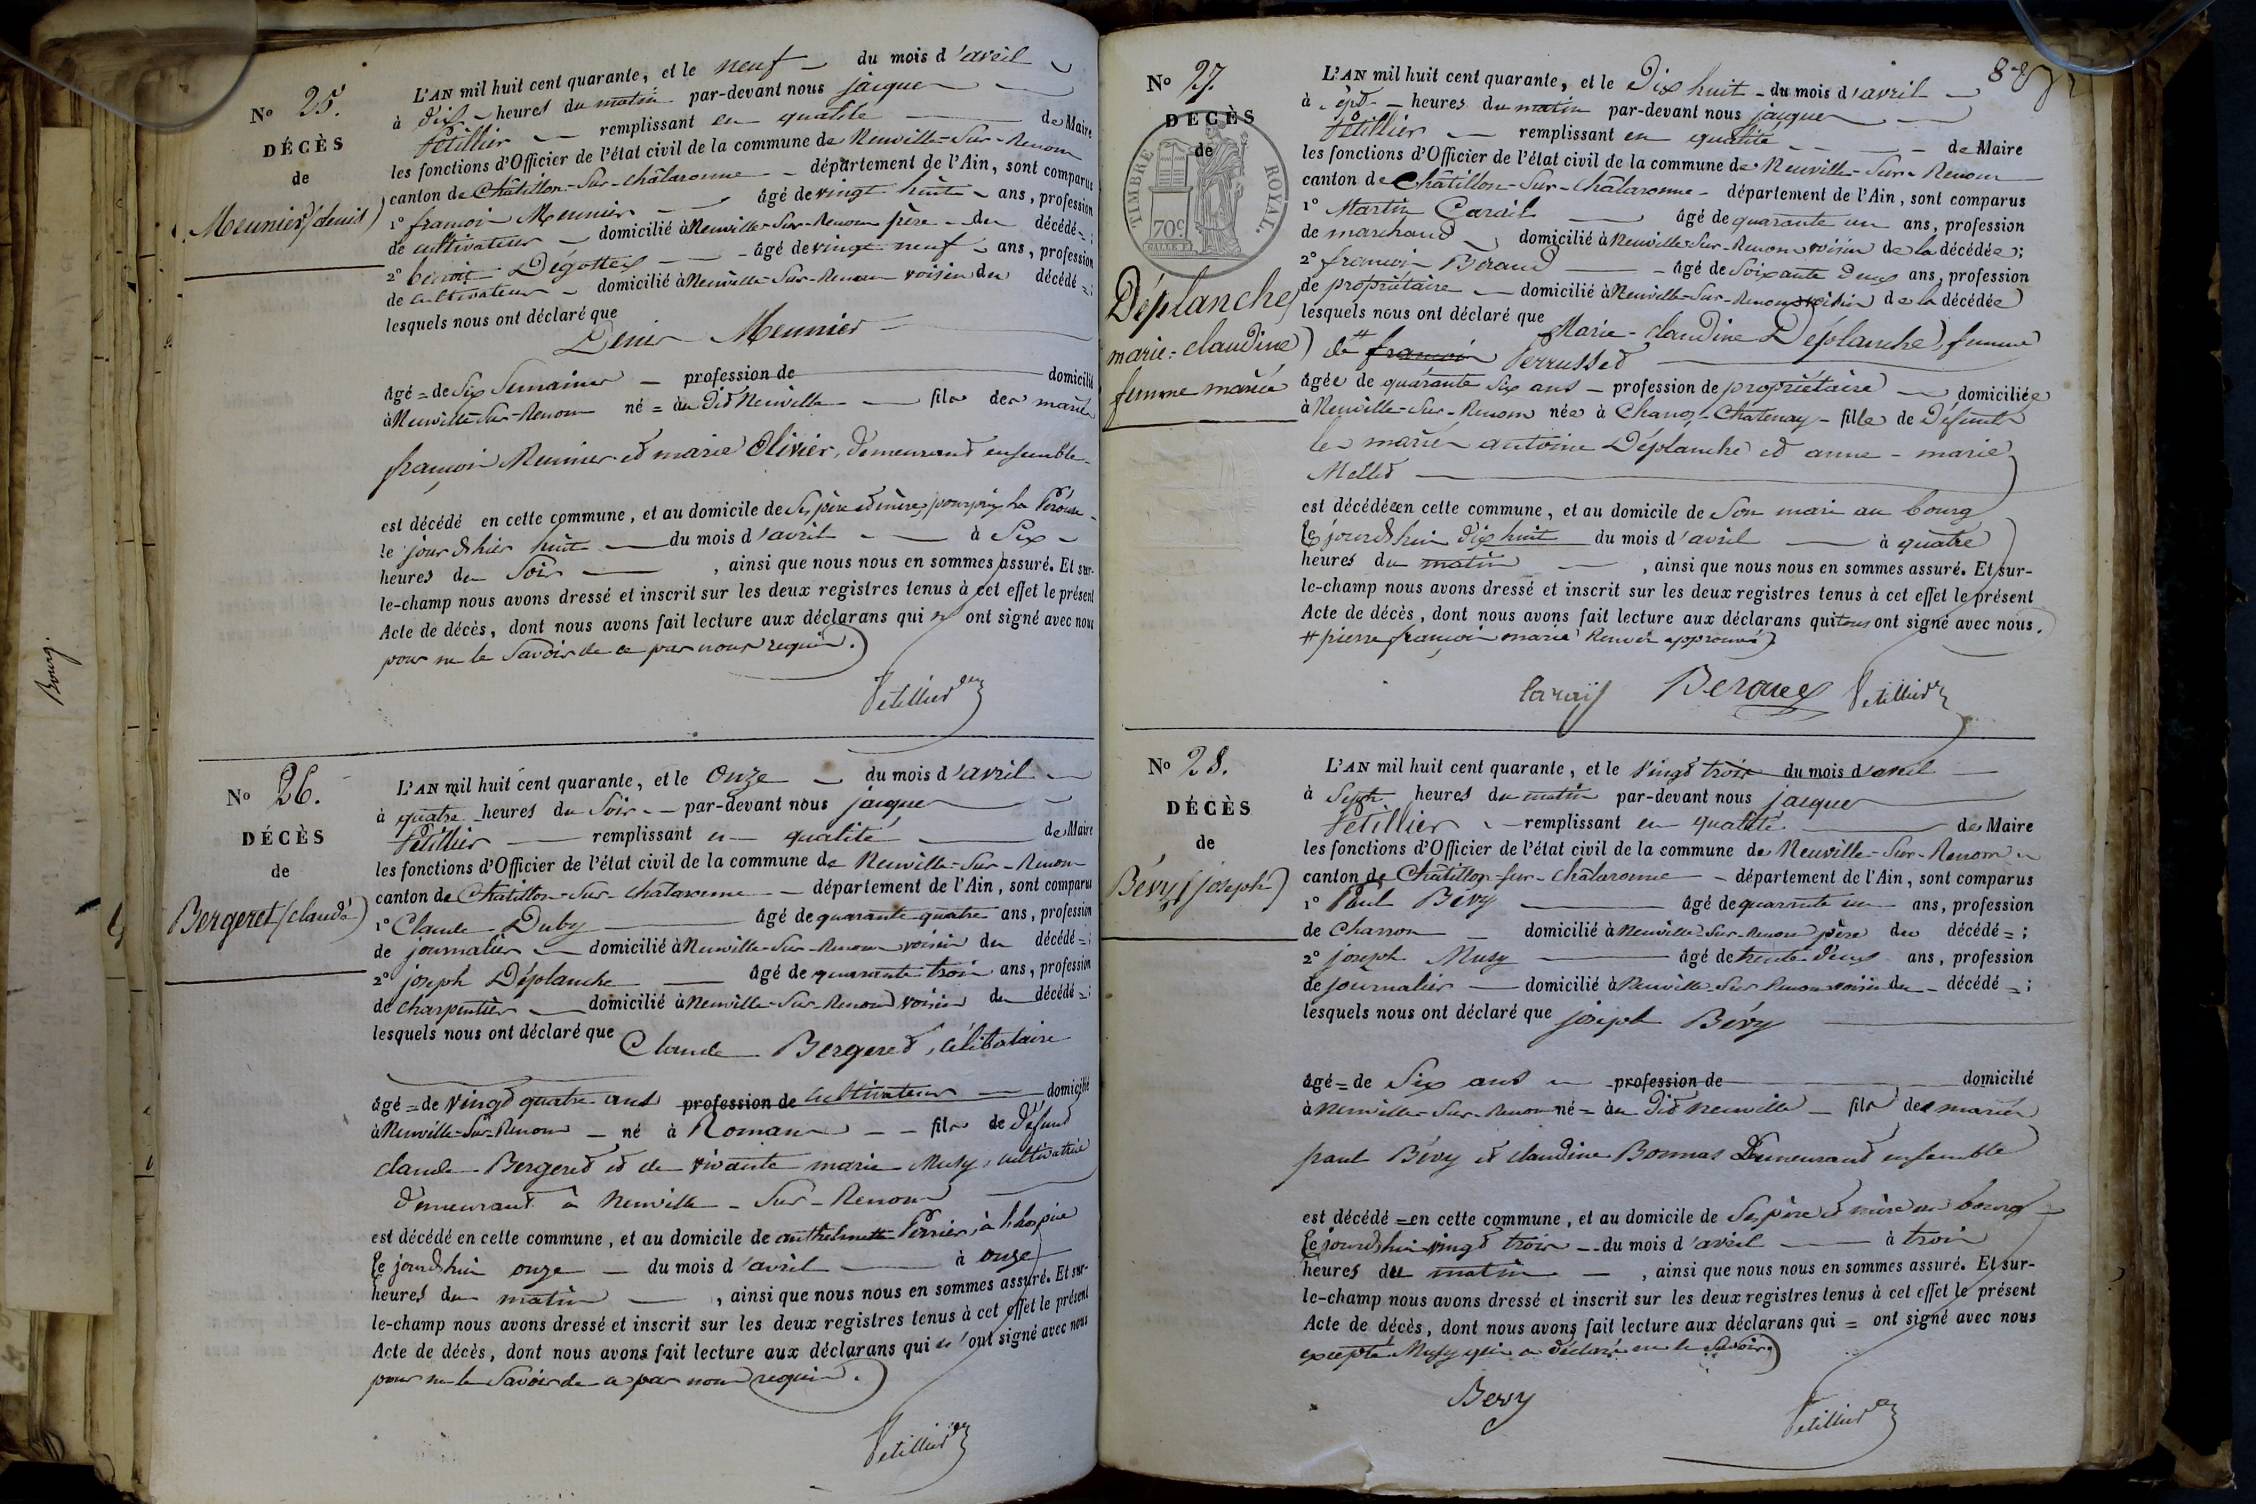 Bourg.
No 25.
DÉCÈS
de
Meunier (denis)
L'AN mil huit cent quarante, et le neuf du mois d'avril
à dix heures du matin par-devant nous jacques
Vétillier remplissant en qualité de Maire
les fonctions d'Officier de l'état civil de la commune de Neuville-Sur-Renom
canton de Châtillon-Sur-Châlaronne département de l'Ain, sont comparus
1º françois Meunier âgé de vingt huit ans, profession
de cultivateur domicilié à Neuville-Sur-Renom père du décédé ;
2º benoit Dégottex âgé de vingt neuf ans, profession
de cultivateur domicilié à Neuville-Sur-Renom voisin du décédé ;
lesquels nous ont déclaré que
Denis Meunier
âgé = de Six Semaines profession de domicilié
à Neuville-Sur-Renom né = au dit Neuville fils des mariés
françois Meunier et marie Olivier, demeurant ensemble
est décédé en cette commune, et au domicile de Ses père et mère,
le jour d'hier huit du mois d'avril à Six
heures du Soir , ainsi que nous nous en sommes assuré. Et sur-
le-champ nous avons dressé et inscrit sur les deux registres tenus à cet effet le présent
Acte de décès, dont nous avons fait lecture aux déclarans qui n' ont signé avec nous
pour ne le Savoir de ce par nous requis.
Vetillier
No 26.
DÉCÈS
de
Bergeret (claude)
L'AN mil huit cent quarante, et le Onze du mois d'avril
à quatre heures du Soir par-devant nous jacques
Vétillier remplissant en qualité de Maire
les fonctions d'Officier de l'état civil de la commune de Neuville-Sur-Renom
canton de Châtillon-Sur-Châlaronne département de l'Ain, sont comparus
1º Claude Duby âgé de quarante quatre ans, profession
de journalier domicilié à Neuville-Sur-Renom voisin du décédé ;
2º joseph Déplanche âgé de quarante trois ans, profession
de charpentier domicilié à Neuville-Sur-Renom voisin du décédé ;
lesquels nous ont déclaré que
Claude Bergeret, célibataire
âgé = de vingt quatre ans profession de cultivateur domicilié
à Neuville-Sur-Renom né à Romans fils de défunt
claude Bergeret et de vivante marie Musy, cultivatrice
demeurant à Neuville-Sur-Renom
est décédé en cette commune, et au domicile de anthelmette Perrier, à l'hospice
le jourd'hui onze du mois d'avril à onze
heures du matin , ainsi que nous nous en sommes assuré. Et sur-
le-champ nous avons dressé et inscrit sur les deux registres tenus à cet effet le présent
Acte de décès, dont nous avons fait lecture aux déclarans qui n'ont signé avec nous
pour ne le Savoir de ce par nous requis.
Vetillier
No 27.
DÉCÈS
de
TIMBRE ROYAL.
70c
Déplanche
marie-claudine
femme mariée
L'AN mil huit cent quarante, et le Dix huit du mois d'avril
à Sept heures du matin par-devant nous jacques
Vétillier remplissant en qualité de Maire
les fonctions d'Officier de l'état civil de la commune de Neuville-Sur-Renom
canton de Châtillon-Sur-Châlaronne département de l'Ain, sont comparus
1º Martin Carail âgé de quarante un ans, profession
de marchand domicilié à Neuville-Sur-Renom voisin de la décédée ;
2º françois Beraud âgé de Soixante deux ans, profession
de propriétaire domicilié à Neuville-Sur-Renom voisin de la décédée
lesquels nous ont déclaré que Marie-claudine Déplanche, femme
de # françois Perrusset
âgée de quarante Six ans profession de propriétaire domiciliée
à Neuville-Sur-Renom née à Chanoz-Chatenay fille de Défunts
les mariés antoine Déplanche et anne-marie
Mellet
est décédée en cette commune, et au domicile de Son mari au bourg
le jourd'hui dix huit du mois d'avril à quatre
heures du matin , ainsi que nous nous en sommes assuré. Et sur-
le-champ nous avons dressé et inscrit sur les deux registres tenus à cet effet le présent
Acte de décès, dont nous avons fait lecture aux déclarans qui tous ont signé avec nous.
# pierre françois marie Renvoi approuvé
Beroud Vetillier
No 28.
DÉCÈS
de
Bévy (joseph)
L'AN mil huit cent quarante, et le vingt trois du mois d'avril
à Sept heures du matin par-devant nous jacques
Vétillier remplissant en qualité de Maire
les fonctions d'Officier de l'état civil de la commune de Neuville-Sur-Renom
canton de Châtillon-Sur-Châlaronne département de l'Ain, sont comparus
1º Paul Bévy âgé de quarante un ans, profession
de Charron domicilié à Neuville-Sur-Renom père du décédé = ;
2º joseph Musy âgé de trente deux ans, profession
de journalier domicilié à Neuville-Sur-Renom voisin du décédé = ;
lesquels nous ont déclaré que joseph Bévy
âgé = de Six ans profession de domicilié
à Neuville-Sur-Renom né = au dit Neuville fils des mariés
paul Bévy et claudine Bonnas Demeurant ensemble
est décédé = en cette commune, et au domicile de Ses père et mère au bourg
le jourd'hui vingt trois du mois d'avril à trois
heures du matin , ainsi que nous nous en sommes assuré. Et sur-
le-champ nous avons dressé et inscrit sur les deux registres tenus à cet effet le présent
Acte de décès, dont nous avons fait lecture aux déclarans qui = ont signé avec nous
excepté Musy qui a déclaré ne le Savoir.
Bevy
Vetillier